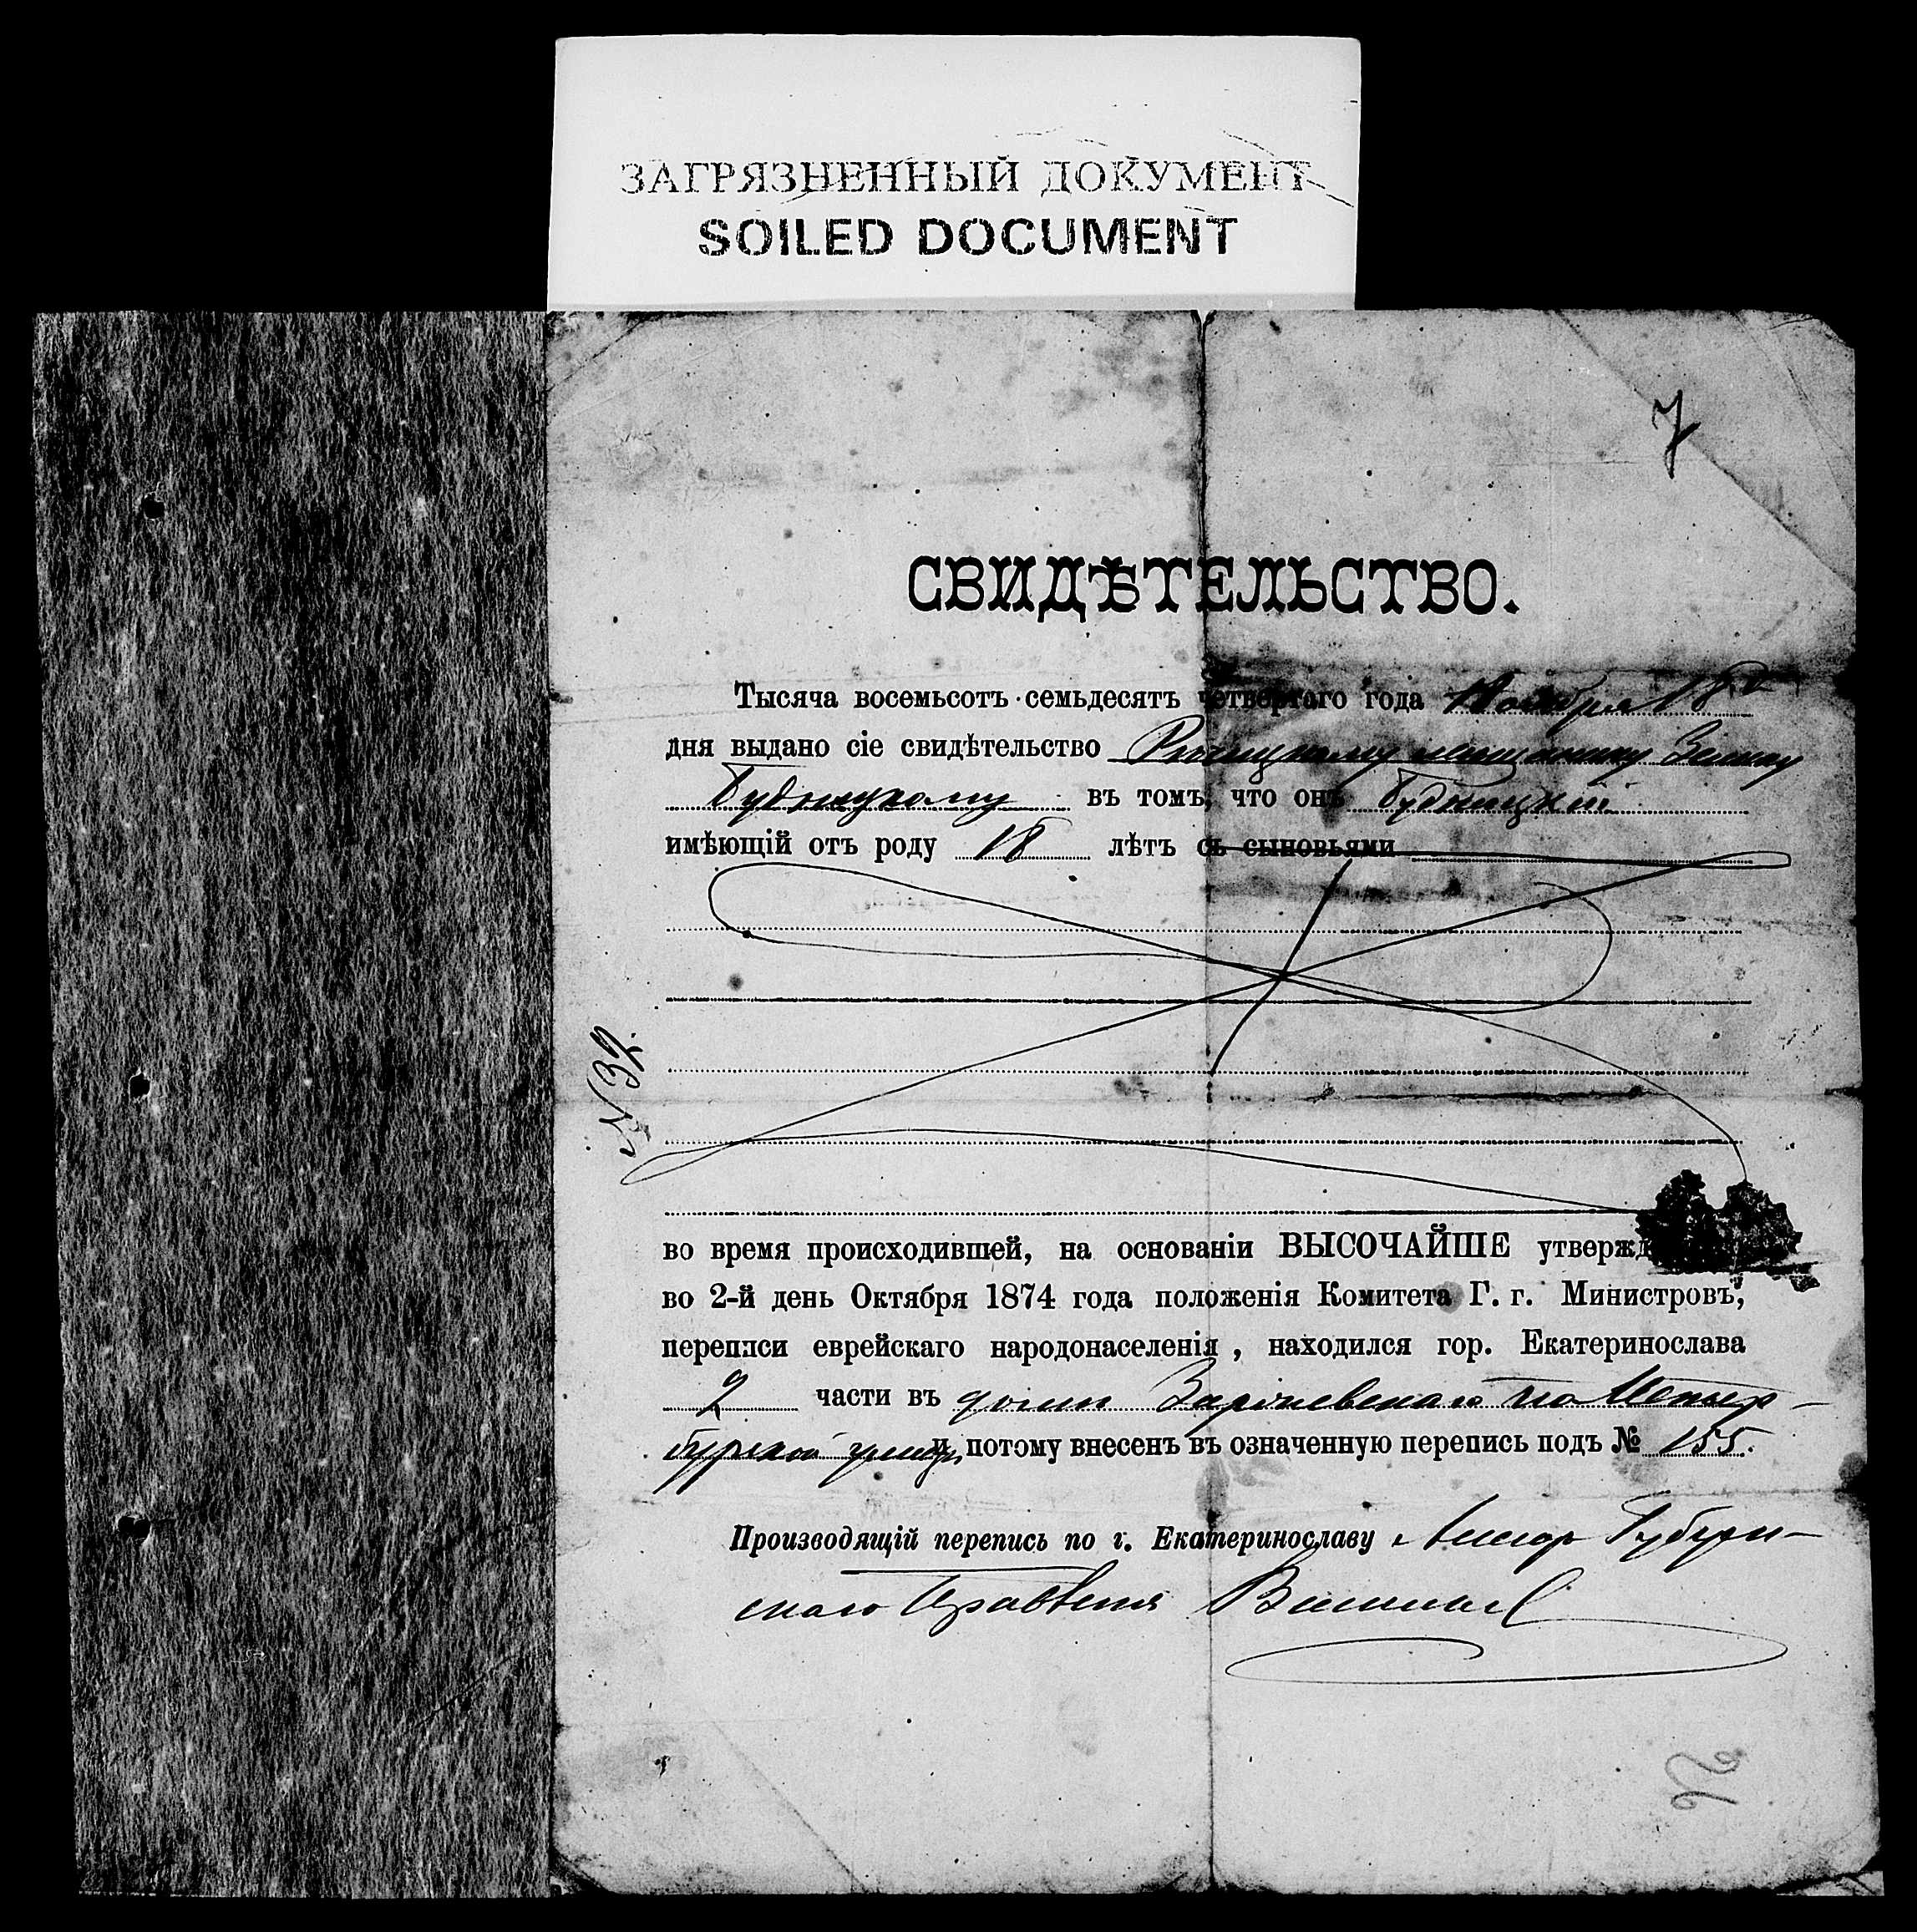 ЗАГРЯЗНЕННЫЙ ДОКУМЕНТ
SOILED DOCUMENT
7
СВИДѢТЕЛЬСТВО.
Тысяча восемьсотъ семьдесятъ четвертаго года Ноября 18го
дня выдано сіе свидѣтельство мѣщанину
Будницкому въ томъ, что онъ Будницкій
имѣющій отъ роду 18 лѣтъ съ сыновьями
№ 32.
во время происходившей, на основаніи ВЫСОЧАЙШЕ утвержд
во 2-й день Октября 1874 года положенія Комитета Г. г. Министровъ,
переписи еврейскаго народонаселенія, находился гор. Екатеринослава
2 части въ домѣ по
улицѣ и потому внесенъ въ означенную перепись подъ № 155.
Производящій перепись по г. Екатеринославу Губерн-
скаго Правленія